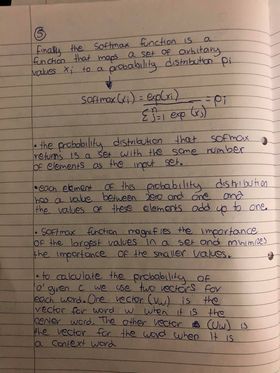 ⑤
finally the softmax function is a
function that maps a set of arbitary
values xi to a probability distribution pi
softmax(xi) = exp(xi) / Σⁿj=1 exp(xj) = pi
• the probability distribution that sofmax
returns is a set with the same number
of elements as the input set.
• each element of this probability distribution
has a value between zero and one and
the values of these elements add up to one.
• softmax function magnifies the importance
of the largest values in a set and minimizes
the importance of the smaller values.
• to calculate the probability of
o given c we use two vectors for
each word. One vector (Vw) is the
vector for word w when it is the
center word. The other vector (Uw) is
the vector for the word when it is
a context word